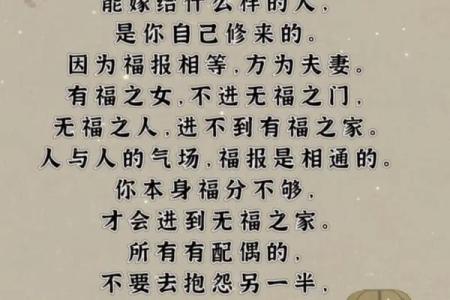 能嫁给什么样的人，
是你自己修来的。
因为福报相等，方为夫妻。
有福之女，不进无福之门，
无福之人，进不到有福之家。
人与人的气场，福报是相通的。
你本身福分不够，
才会进到无福之家。
所有有配偶的，
不要去抱怨另一半，